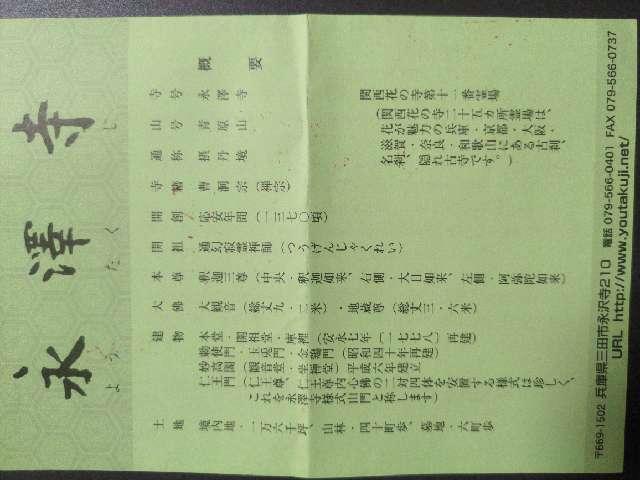 永澤寺
よう たく じ
概要
寺号 永澤寺
山号 青原山
通称 摂丹境
寺籍 曹洞宗(禅宗)
開創 応安年間(一三七〇頃)
開祖 通幻寂霊禅師(つうげんじゃくれい)
本尊 釈迦三尊(中央・釈迦如来、右側・大日如来、左側・阿弥陀如来)
大佛 大観音(総丈九・二米)・地蔵尊(総丈三・六米)
建物 本堂・開祖堂・庫裡(安永七年(一七七八)再建)
勅使門・玉兎門・金鶏門(昭和四十年再建)
妙高閣・観音堂・坐禅堂・平成六年建立
仁王門(仁王尊、仁王尊内心佛の二対四体を安置する様式は珍しく、
これを永澤寺様式山門と称します)
土地 境内地・二万六千坪、山林・四十町歩、墓地・六町歩
関西花の寺第十一番霊場
(関西花の寺二十五カ所霊場は、
花が魅力の兵庫・京都・大阪・
滋賀・奈良・和歌山にある古刹、
名刹、隠れ古寺です。)
〒669-1502 兵庫県三田市永沢寺210 電話 079-566-0401 FAX 079-566-0737
URL http://www.youtakuji.net/